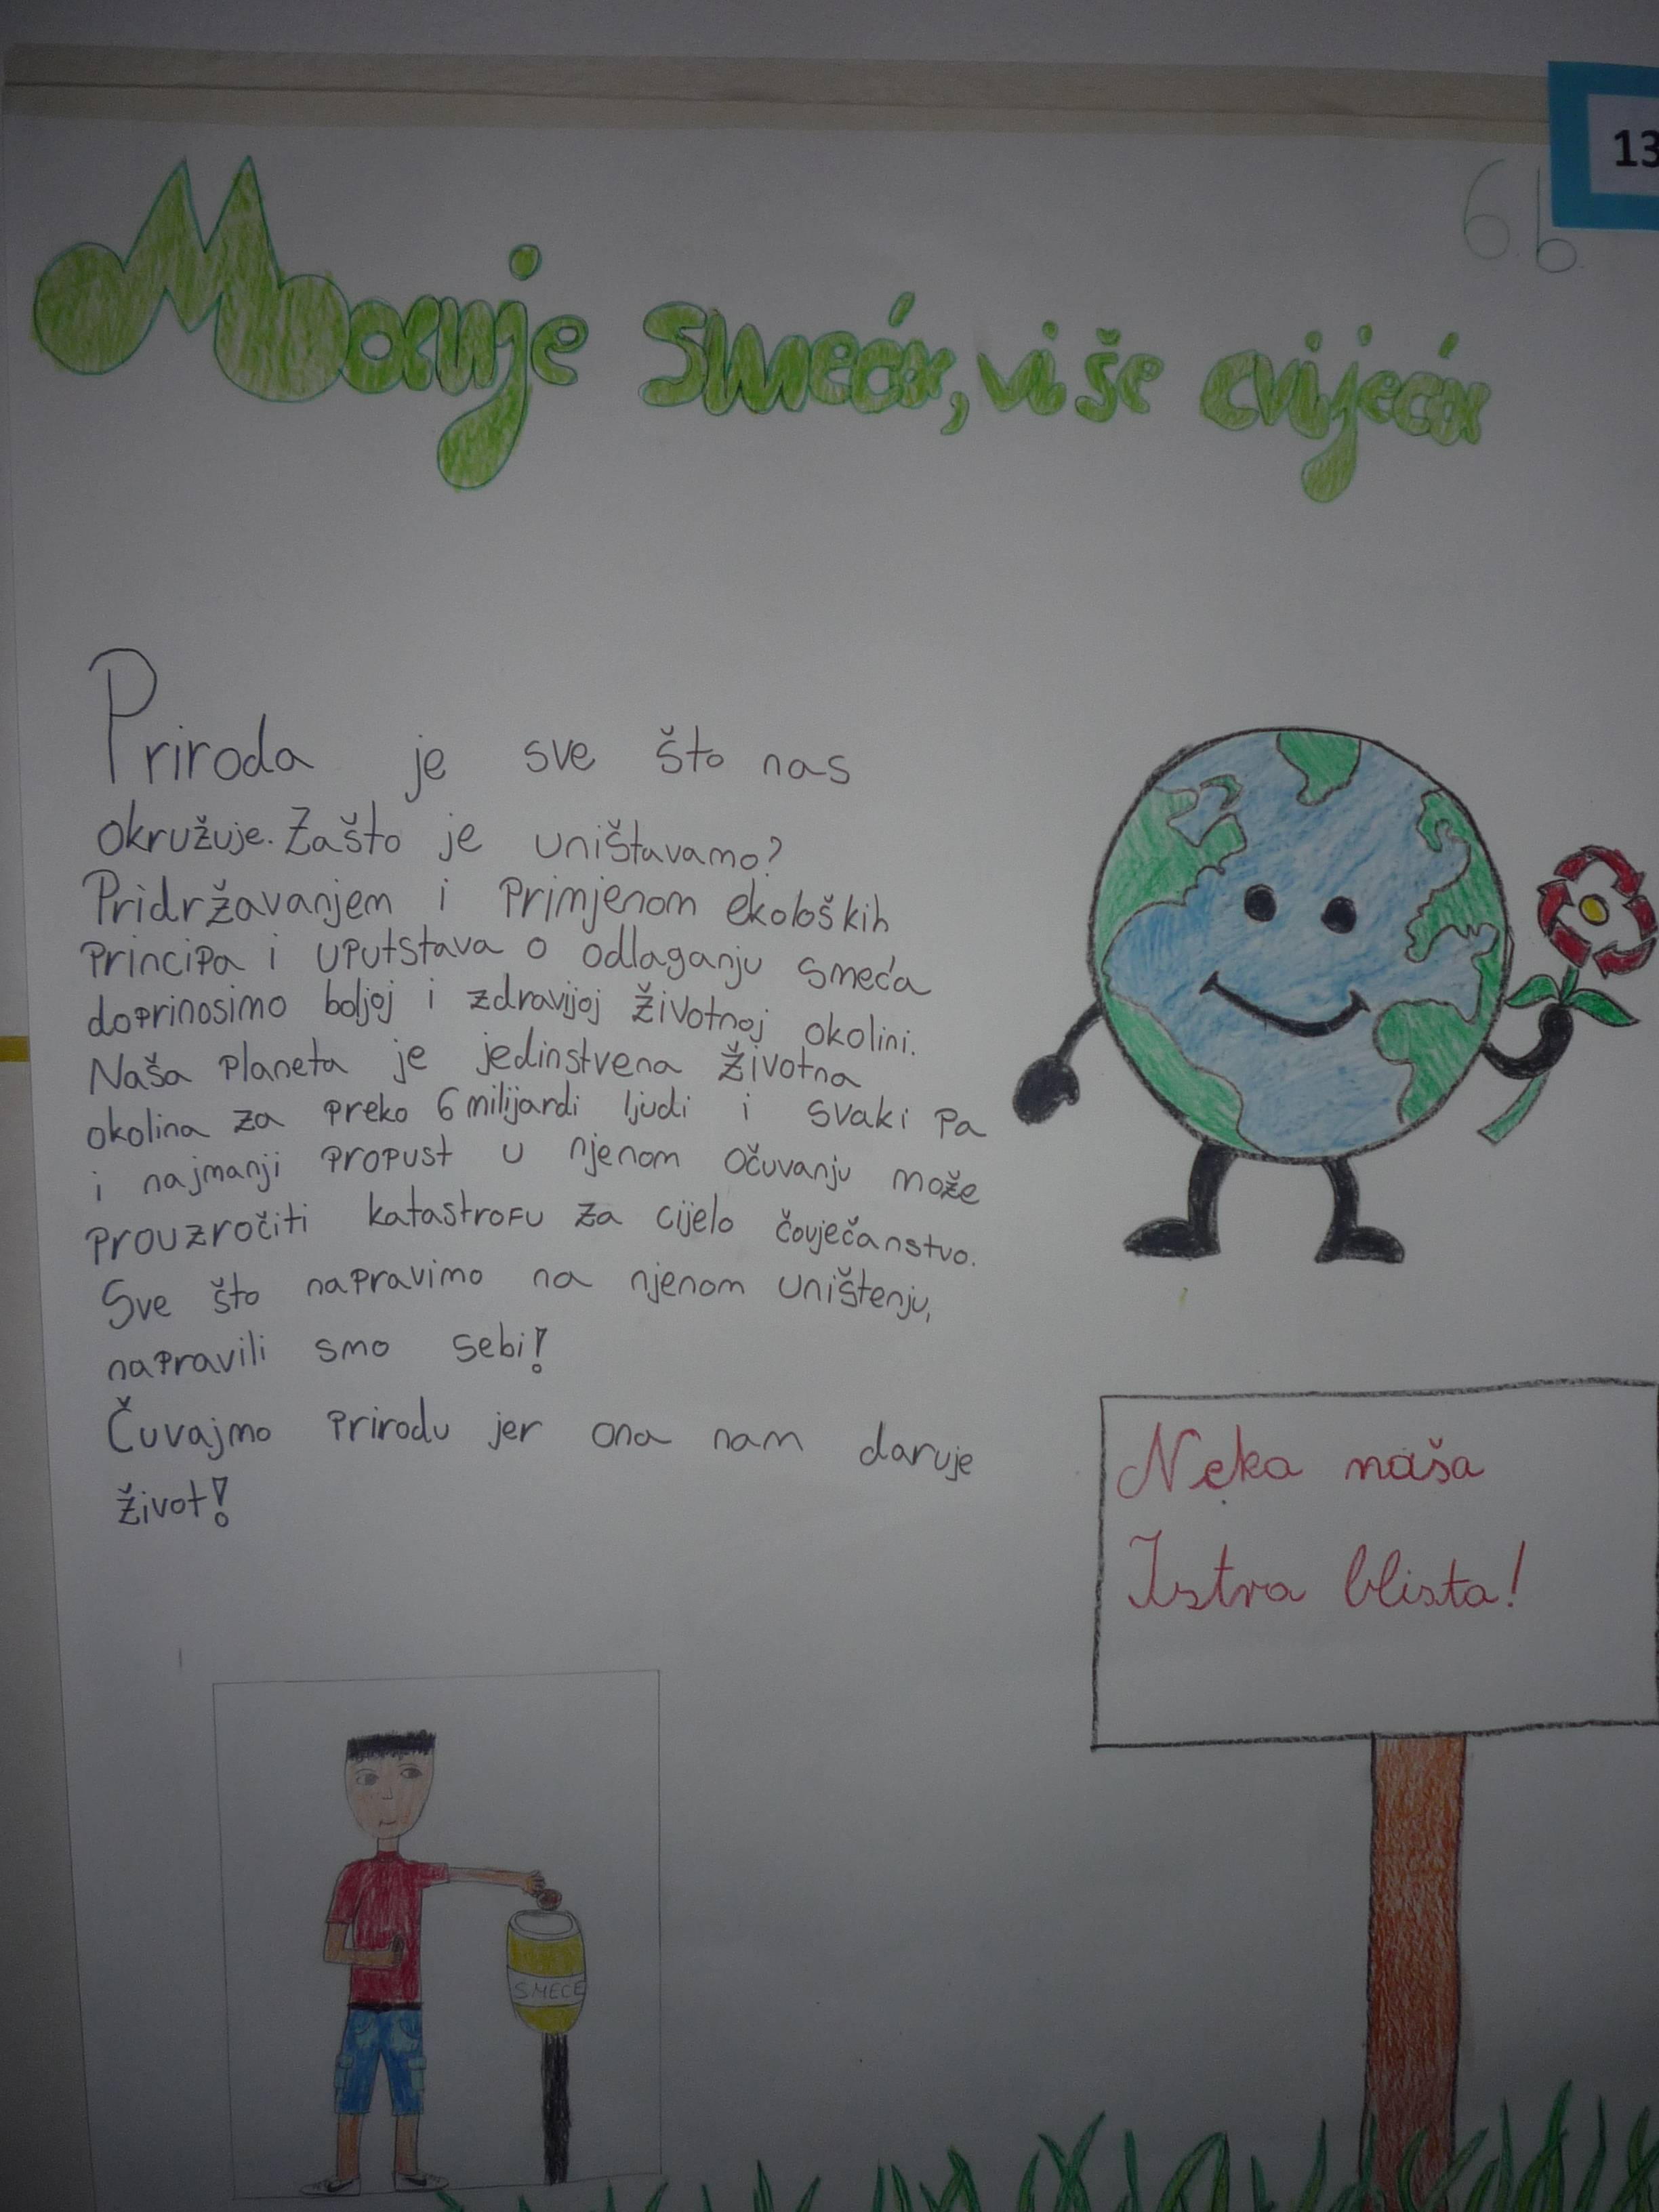 13
6.b
Manje smeća, više cvijeća
Priroda je sve što nas
okružuje. Zašto je uništavamo?
Pridržavanjem i primjenom ekoloških
principa i uputstava o odlaganju smeća
doprinosimo boljoj i zdravijoj životnoj okolini.
Naša planeta je jedinstvena životna
okolina za preko 6 milijardi ljudi i svaki pa
i najmanji propust u njenom očuvanju može
prouzročiti katastrofu za cijelo čovječanstvo.
Sve što napravimo na njenom uništenju,
napravili smo sebi!
Čuvajmo prirodu jer ona nam daruje
život!
Neka naša
Istra blista!
SMEĆE